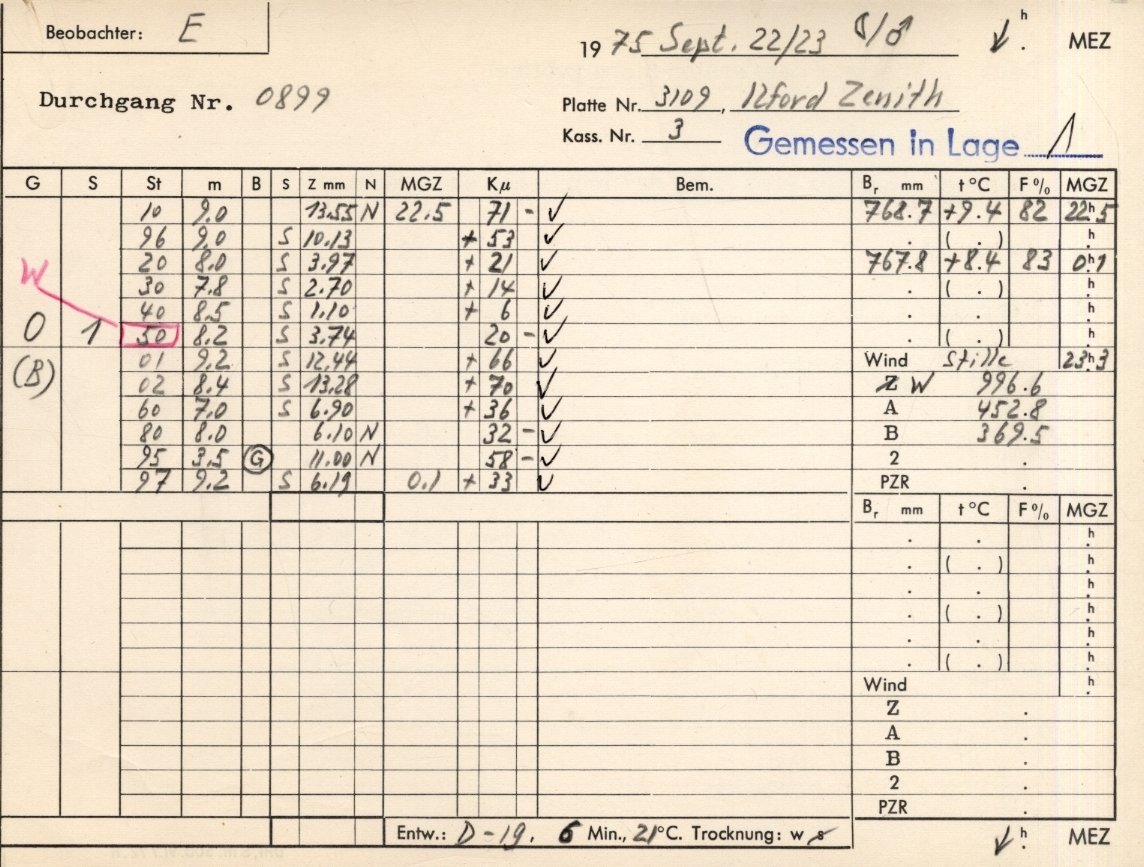 Beobachter: E
1975 Sept. 22/23 h MEZ
Durchgang Nr. 0899
Platte Nr. 3109, Ilford Zenith
Kass. Nr. 3 Gemessen in Lage 1
G S St m B S Z mm N MGZ Kμ Bem. Br mm t °C F % MGZ
10 9.0 13.55 N 22.5 71 - ✓ 768.7 +9.4 82 22h5
96 9.0 S 10.13 + 53 ✓ . ( . ) h.
20 8.0 S 3.97 + 21 ✓ 767.8 +8.4 83 0h1
W 30 7.8 S 2.70 + 14 ✓ . ( . ) h.
40 8.5 S 1.10 + 6 ✓ . h.
0 1 50 8.2 S 3.74 20 - ✓ . ( . ) h.
01 9.2 S 12.44 + 66 ✓ Wind Stille 23h3
(B) 02 8.4 S 13.28 + 70 ✓ Z W 996.6
60 7.0 S 6.90 + 36 ✓ A 452.8
80 8.0 6.10 N 32 - ✓ B 369.5
95 3.5 G 11.00 N 58 - ✓ 2 .
97 9.2 S 6.19 0.1 + 33 ✓ PZR .
Br mm t °C F % MGZ
. h.
. ( . ) h.
. h.
. ( . ) h.
. h.
. ( . ) h.
Wind h.
Z .
A .
B .
2 .
PZR .
Entw.: D-19. 6 Min., 21°C. Trocknung: w s h MEZ